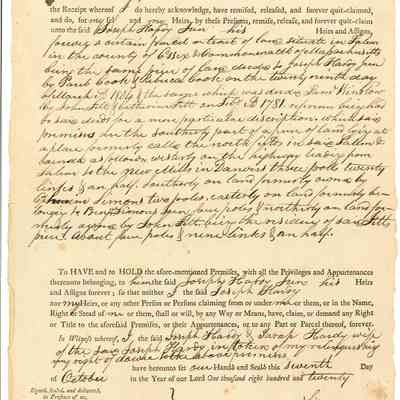 the Receipt whereof I do hereby acknowledge, have remised, released, and forever quit-claimed,
and do, for my self and my Heirs, by these Presents, remise, release, and forever quit-claim
unto the said Joseph Hardy Jun his Heirs and Assigns,
forever a certain parcel or tract of land situate in Salem
in the county of Essex & Commonwealth of Massachusetts
being the same piece of land deeded to Joseph Hardy Jun
by & Cook on the twenty ninth day
of March and the same which was deeded Winslow
by John & Catherine 1781 reference being had
to said deeds for a more particular discription. which said
premises in the southerly part of a piece of land lying at
a place formerly calld the north in said Salem &
bounded as follows westerly on the highway leading from
Salem to the new Mills in Danvers three polls twenty
links & an half. Southerly on land formerly owned by
Simons two poles, easterly on land formerly be-
longing to Simons Jun four poles & northerly on land for-
merly by John being the residue of said
piece about four poles & nine links & an half.
To HAVE and to HOLD the afore-mentioned Premises, with all the Privileges and Appurtenances
thereunto belonging, to him the said Joseph Hardy Jun his Heirs
and Assigns forever; so that neither I the said Joseph Hardy
nor my Heirs, or any other Person or Persons claiming from or under me or them, or in the Name,
Right or Stead of me or them, shall or will, by any Way or Means, have, claim, or demand any Right
or Title to the aforesaid Premises, or their Appurtenances, or to any Part or Parcel thereof, forever.
In Witness whereof, I, the said Joseph Hardy & Sarah Hardy wife
of the said Joseph Hardy in token of my relinquishing
my right of dower to the above premises
have hereunto set our Hands and Seals this seventh Day
of October in the Year of our Lord One thousand eight hundred and twenty
Signed, Sealed, and delivered
in Presence of us,